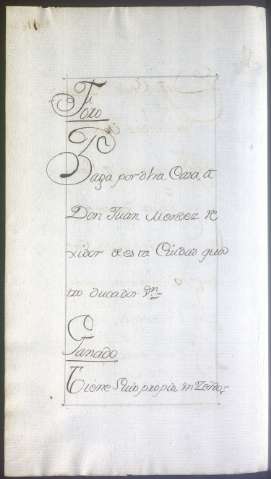 Foro
Paga por otra Casa, a
Don Juan Mendez Re
xidor de esta Ciudad qua
tro ducados
Ganado
Tiene suio propio un Zerdo